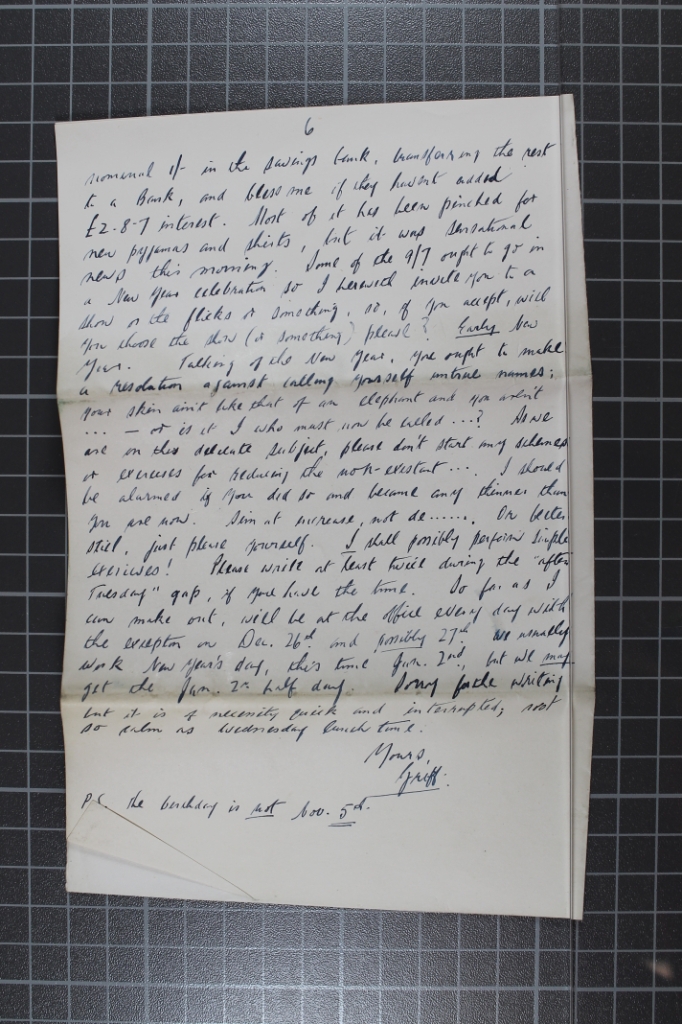 6
nominal 1/- in the savings bank, transferring the rest
to a Bank, and bless me if they haven't added
£2-8-7 interest. Most of it has been pinched for
new pyjamas and shirts, but it was sensational
news this morning. Some of the 9/7 ought to go in
a New Year celebration so I herewith invite you to a
show or the flicks or something, so, if you accept, will
you choose the show (or something) please? Early New
Year. Talking of the New Year, you ought to make
a resolution against calling yourself untrue names:
your skin ain't like that of an elephant and you aren't
... — or is it I who must now be called ...? As we
are on this delicate subject, please don't start any schemes
or exercises for reducing the non-existant .... I should
be alarmed if you did so and became any thinner than
you are now. Aim at increase, not de....... Or better
still, just please yourself. I shall possibly perform simple
exercises! Please write at least twice during the "after
Tuesday" gap, if you have the time. So far as I
can make out, will be at the office every day with
the exception on Dec. 26th and possibly 27th. We usually
work New Year's day, this time Jan. 2nd, but we may
get the Jan. 2n half day. Sorry for the writing
but it is of necessity quick and interrupted; not
so calm as Wednesday lunch time.
Yours,
Griff.
P.S. the birthday is not Nov. 5th.